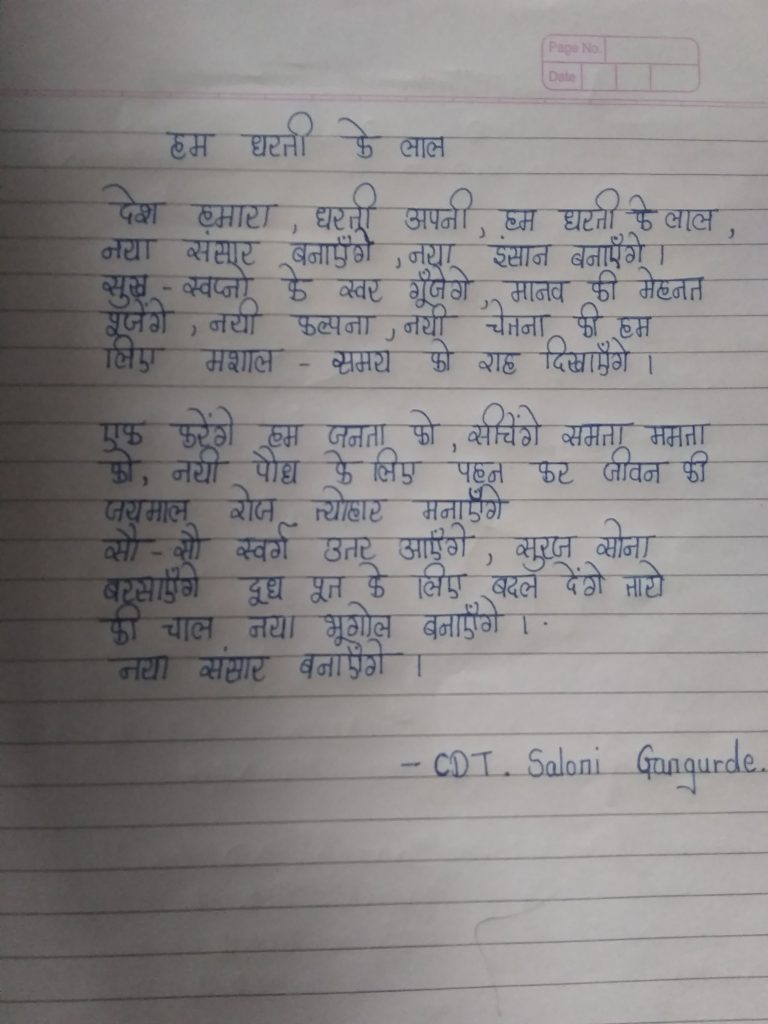 Page No.
Date
हम धरती के लाल
देश हमारा , धरती अपनी , हम धरती के लाल ,
नया संसार बनाएँगे , नया इंसान बनाएँगे ।
सुख - स्वप्नो के स्वर गूँजेगे , मानव की मेहनत
पूजेंगे , नयी कल्पना , नयी चेतना की हम
लिए मशाल - समय को राह दिखाएँगे ।
एक करेंगे हम जनता को , सीचेंगे समता ममता
को , नयी पौध के लिए पहन कर जीवन की
जयमाल रोज त्योहार मनाएँगे
सौ - सौ स्वर्ग उतर आएँगे , सुरज सोना
बरसाएँगे दूध पूत के लिए बदल देंगे तारो
की चाल नया भूगोल बनाएँगे ।
नया संसार बनाएँगे ।
- CDT. Saloni Gangurde.